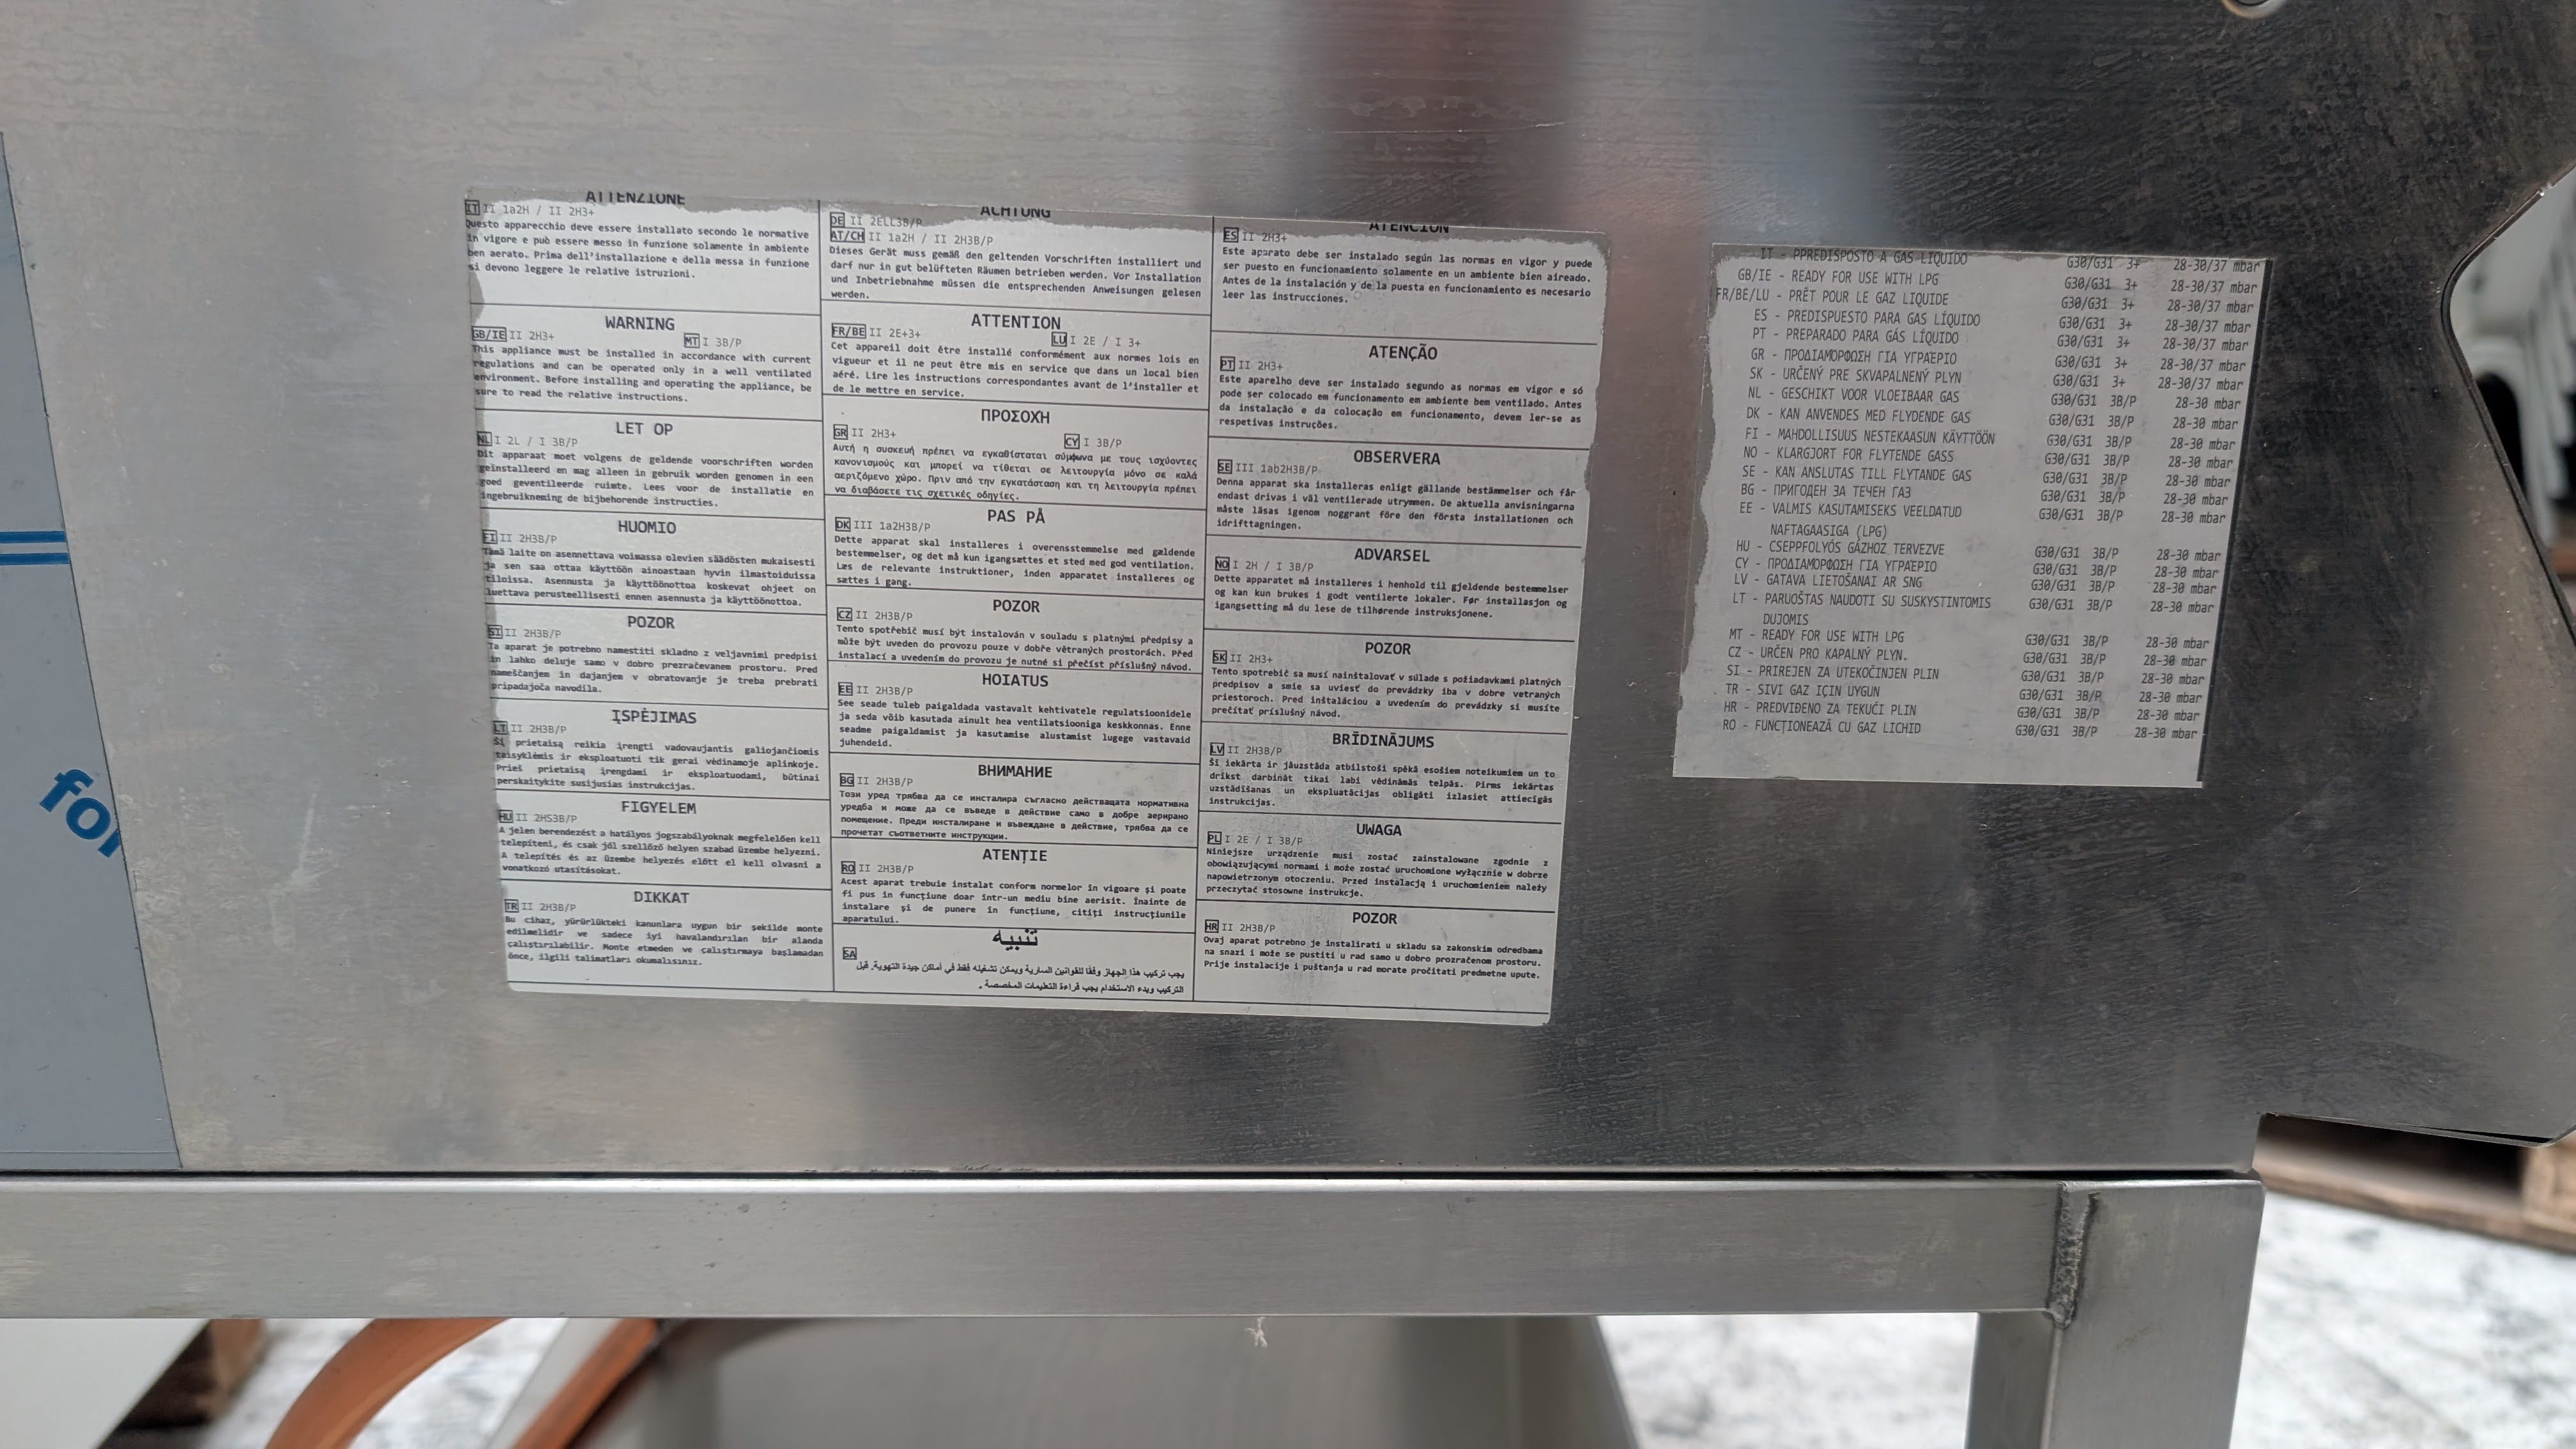 ATTENZIONE
IT II 1a2H / II 2H3+
Questo apparecchio deve essere installato secondo le normative
in vigore e può essere messo in funzione solamente in ambiente
ben aerato. Prima dell'installazione e della messa in funzione
si devono leggere le relative istruzioni.
WARNING
GB/IE II 2H3+ MT I 3B/P
This appliance must be installed in accordance with current
regulations and can be operated only in a well ventilated
environment. Before installing and operating the appliance, be
sure to read the relative instructions.
LET OP
NL I 2L / I 3B/P
Dit apparaat moet volgens de geldende voorschriften worden
geïnstalleerd en mag alleen in gebruik worden genomen in een
goed geventileerde ruimte. Lees voor de installatie en
ingebruikneming de bijbehorende instructies.
HUOMIO
FI II 2H3B/P
Tämä laite on asennettava voimassa olevien säädösten mukaisesti
ja sen saa ottaa käyttöön ainoastaan hyvin ilmastoiduissa
tiloissa. Asennusta ja käyttöönottoa koskevat ohjeet on
luettava perusteellisesti ennen asennusta ja käyttöönottoa.
POZOR
SI II 2H3B/P
Ta aparat je potrebno namestiti skladno z veljavnimi predpisi
in lahko deluje samo v dobro prezračevanem prostoru. Pred
nameščanjem in dajanjem v obratovanje je treba prebrati
pripadajoča navodila.
ĮSPĖJIMAS
LT II 2H3B/P
Šį prietaisą reikia įrengti vadovaujantis galiojančiomis
taisyklėmis ir eksploatuoti tik gerai vėdinamoje aplinkoje.
Prieš prietaisą įrengdami ir eksploatuodami, būtinai
perskaitykite susijusias instrukcijas.
FIGYELEM
HU II 2HS3B/P
A jelen berendezést a hatályos jogszabályoknak megfelelően kell
telepíteni, és csak jól szellőző helyen szabad üzembe helyezni.
A telepítés és az üzembe helyezés előtt el kell olvasni a
vonatkozó utasításokat.
DIKKAT
TR II 2H3B/P
Bu cihaz, yürürlükteki kanunlara uygun bir şekilde monte
edilmelidir ve sadece iyi havalandırılan bir alanda
çalıştırılabilir. Monte etmeden ve çalıştırmaya başlamadan
önce, ilgili talimatları okumalısınız.
ACHTUNG
DE II 2ELL3B/P
AT/CH II 1a2H / II 2H3B/P
Dieses Gerät muss gemäß den geltenden Vorschriften installiert und
darf nur in gut belüfteten Räumen betrieben werden. Vor Installation
und Inbetriebnahme müssen die entsprechenden Anweisungen gelesen
werden.
ATTENTION
FR/BE II 2E+3+ LU I 2E / I 3+
Cet appareil doit être installé conformément aux normes lois en
vigueur et il ne peut être mis en service que dans un local bien
aéré. Lire les instructions correspondantes avant de l'installer et
de le mettre en service.
ΠΡΟΣΟΧΗ
GR II 2H3+ CY I 3B/P
Αυτή η συσκευή πρέπει να εγκαθίσταται σύμφωνα με τους ισχύοντες
κανονισμούς και μπορεί να τίθεται σε λειτουργία μόνο σε καλά
αεριζόμενο χώρο. Πριν από την εγκατάσταση και τη λειτουργία πρέπει
να διαβάσετε τις σχετικές οδηγίες.
PAS PÅ
DK III 1a2H3B/P
Dette apparat skal installeres i overensstemmelse med gældende
bestemmelser, og det må kun igangsættes et sted med god ventilation.
Læs de relevante instruktioner, inden apparatet installeres og
sættes i gang.
POZOR
CZ II 2H3B/P
Tento spotřebič musí být instalován v souladu s platnými předpisy a
může být uveden do provozu pouze v dobře větraných prostorách. Před
instalací a uvedením do provozu je nutné si přečíst příslušný návod.
HOIATUS
EE II 2H3B/P
See seade tuleb paigaldada vastavalt kehtivatele regulatsioonidele
ja seda võib kasutada ainult hea ventilatsiooniga keskkonnas. Enne
seadme paigaldamist ja kasutamise alustamist lugege vastavaid
juhendeid.
ВНИМАНИЕ
BG II 2H3B/P
Този уред трябва да се инсталира съгласно действащата нормативна
уредба и може да се въведе в действие само в добре аерирано
помещение. Преди инсталиране и въвеждане в действие, трябва да се
прочетат съответните инструкции.
ATENȚIE
RO II 2H3B/P
Acest aparat trebuie instalat conform normelor în vigoare și poate
fi pus în funcțiune doar într-un mediu bine aerisit. Înainte de
instalare și de punere în funcțiune, citiți instrucțiunile
aparatului.
تنبيه
SA
يجب تركيب هذا الجهاز وفقا للقوانين السارية ويمكن تشغيله فقط في أماكن جيدة التهوية. قبل
التركيب وبدء الاستخدام يجب قراءة التعليمات المخصصة .
ATENCIÓN
ES II 2H3+
Este aparato debe ser instalado según las normas en vigor y puede
ser puesto en funcionamiento solamente en un ambiente bien aireado.
Antes de la instalación y de la puesta en funcionamiento es necesario
leer las instrucciones.
ATENÇÃO
PT II 2H3+
Este aparelho deve ser instalado segundo as normas em vigor e só
pode ser colocado em funcionamento em ambiente bem ventilado. Antes
da instalação e da colocação em funcionamento, devem ler-se as
respetivas instruções.
OBSERVERA
SE III 1ab2H3B/P
Denna apparat ska installeras enligt gällande bestämmelser och får
endast drivas i väl ventilerade utrymmen. De aktuella anvisningarna
måste läsas igenom noggrant före den första installationen och
idrifttagningen.
ADVARSEL
NO I 2H / I 3B/P
Dette apparatet må installeres i henhold til gjeldende bestemmelser
og kan kun brukes i godt ventilerte lokaler. Før installasjon og
igangsetting må du lese de tilhørende instruksjonene.
POZOR
SK II 2H3+
Tento spotrebič sa musí nainštalovať v súlade s požiadavkami platných
predpisov a smie sa uviesť do prevádzky iba v dobre vetraných
priestoroch. Pred inštaláciou a uvedením do prevádzky si musíte
prečítať príslušný návod.
BRĪDINĀJUMS
LV II 2H3B/P
Šī iekārta ir jāuzstāda atbilstoši spēkā esošiem noteikumiem un to
drīkst darbināt tikai labi vēdināmās telpās. Pirms iekārtas
uzstādīšanas un ekspluatācijas obligāti izlasiet attiecīgās
instrukcijas.
UWAGA
PL I 2E / I 3B/P
Niniejsze urządzenie musi zostać zainstalowane zgodnie z
obowiązującymi normami i może zostać uruchomione wyłącznie w dobrze
napowietrzonym otoczeniu. Przed instalacją i uruchomieniem należy
przeczytać stosowne instrukcje.
POZOR
HR II 2H3B/P
Ovaj aparat potrebno je instalirati u skladu sa zakonskim odredbama
na snazi i može se pustiti u rad samo u dobro prozračenom prostoru.
Prije instalacije i puštanja u rad morate pročitati predmetne upute.
IT - PPREDISPOSTO A GAS LIQUIDO G30/G31 3+ 28-30/37 mbar
GB/IE - READY FOR USE WITH LPG G30/G31 3+ 28-30/37 mbar
FR/BE/LU - PRÊT POUR LE GAZ LIQUIDE G30/G31 3+ 28-30/37 mbar
ES - PREDISPUESTO PARA GAS LÍQUIDO G30/G31 3+ 28-30/37 mbar
PT - PREPARADO PARA GÁS LÍQUIDO G30/G31 3+ 28-30/37 mbar
GR - ΠΡΟΔΙΑΜΟΡΦΩΣΗ ΓΙΑ ΥΓΡΑΈΡΙΟ G30/G31 3+ 28-30/37 mbar
SK - URČENÝ PRE SKVAPALNENÝ PLYN G30/G31 3+ 28-30/37 mbar
NL - GESCHIKT VOOR VLOEIBAAR GAS G30/G31 3B/P 28-30 mbar
DK - KAN ANVENDES MED FLYDENDE GAS G30/G31 3B/P 28-30 mbar
FI - MAHDOLLISUUS NESTEKAASUN KÄYTTÖÖN G30/G31 3B/P 28-30 mbar
NO - KLARGJORT FOR FLYTENDE GASS G30/G31 3B/P 28-30 mbar
SE - KAN ANSLUTAS TILL FLYTANDE GAS G30/G31 3B/P 28-30 mbar
BG - ПРИГОДЕН ЗА ТЕЧЕН ГАЗ G30/G31 3B/P 28-30 mbar
EE - VALMIS KASUTAMISEKS VEELDATUD G30/G31 3B/P 28-30 mbar
NAFTAGAASIGA (LPG)
HU - CSEPPFOLYÓS GÁZHOZ TERVEZVE G30/G31 3B/P 28-30 mbar
CY - ΠΡΟΔΙΑΜΟΡΦΩΣΗ ΓΙΑ ΥΓΡΑΈΡΙΟ G30/G31 3B/P 28-30 mbar
LV - GATAVA LIETOŠANAI AR SNG G30/G31 3B/P 28-30 mbar
LT - PARUOŠTAS NAUDOTI SU SUSKYSTINTOMIS G30/G31 3B/P 28-30 mbar
DUJOMIS
MT - READY FOR USE WITH LPG G30/G31 3B/P 28-30 mbar
CZ - URČEN PRO KAPALNÝ PLYN. G30/G31 3B/P 28-30 mbar
SI - PRIREJEN ZA UTEKOČINJEN PLIN G30/G31 3B/P 28-30 mbar
TR - SIVI GAZ IÇIN UYGUN G30/G31 3B/P 28-30 mbar
HR - PREDVIĐENO ZA TEKUĆI PLIN G30/G31 3B/P 28-30 mbar
RO - FUNCȚIONEAZĂ CU GAZ LICHID G30/G31 3B/P 28-30 mbar